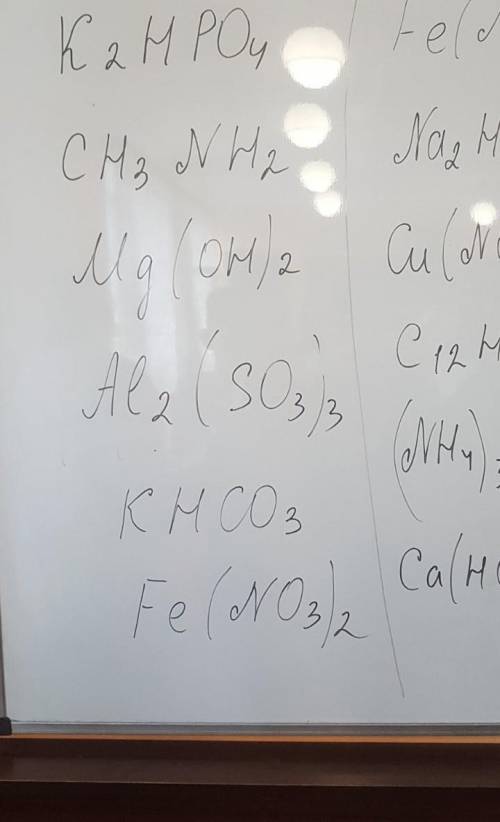 K2HPO4
CH3NH2
Mg(OH)2
Al2(SO3)3
KHCO3
Fe(NO3)2
Fe(
Na2H
Cu(N
C12H
(NH4)3
Ca(H